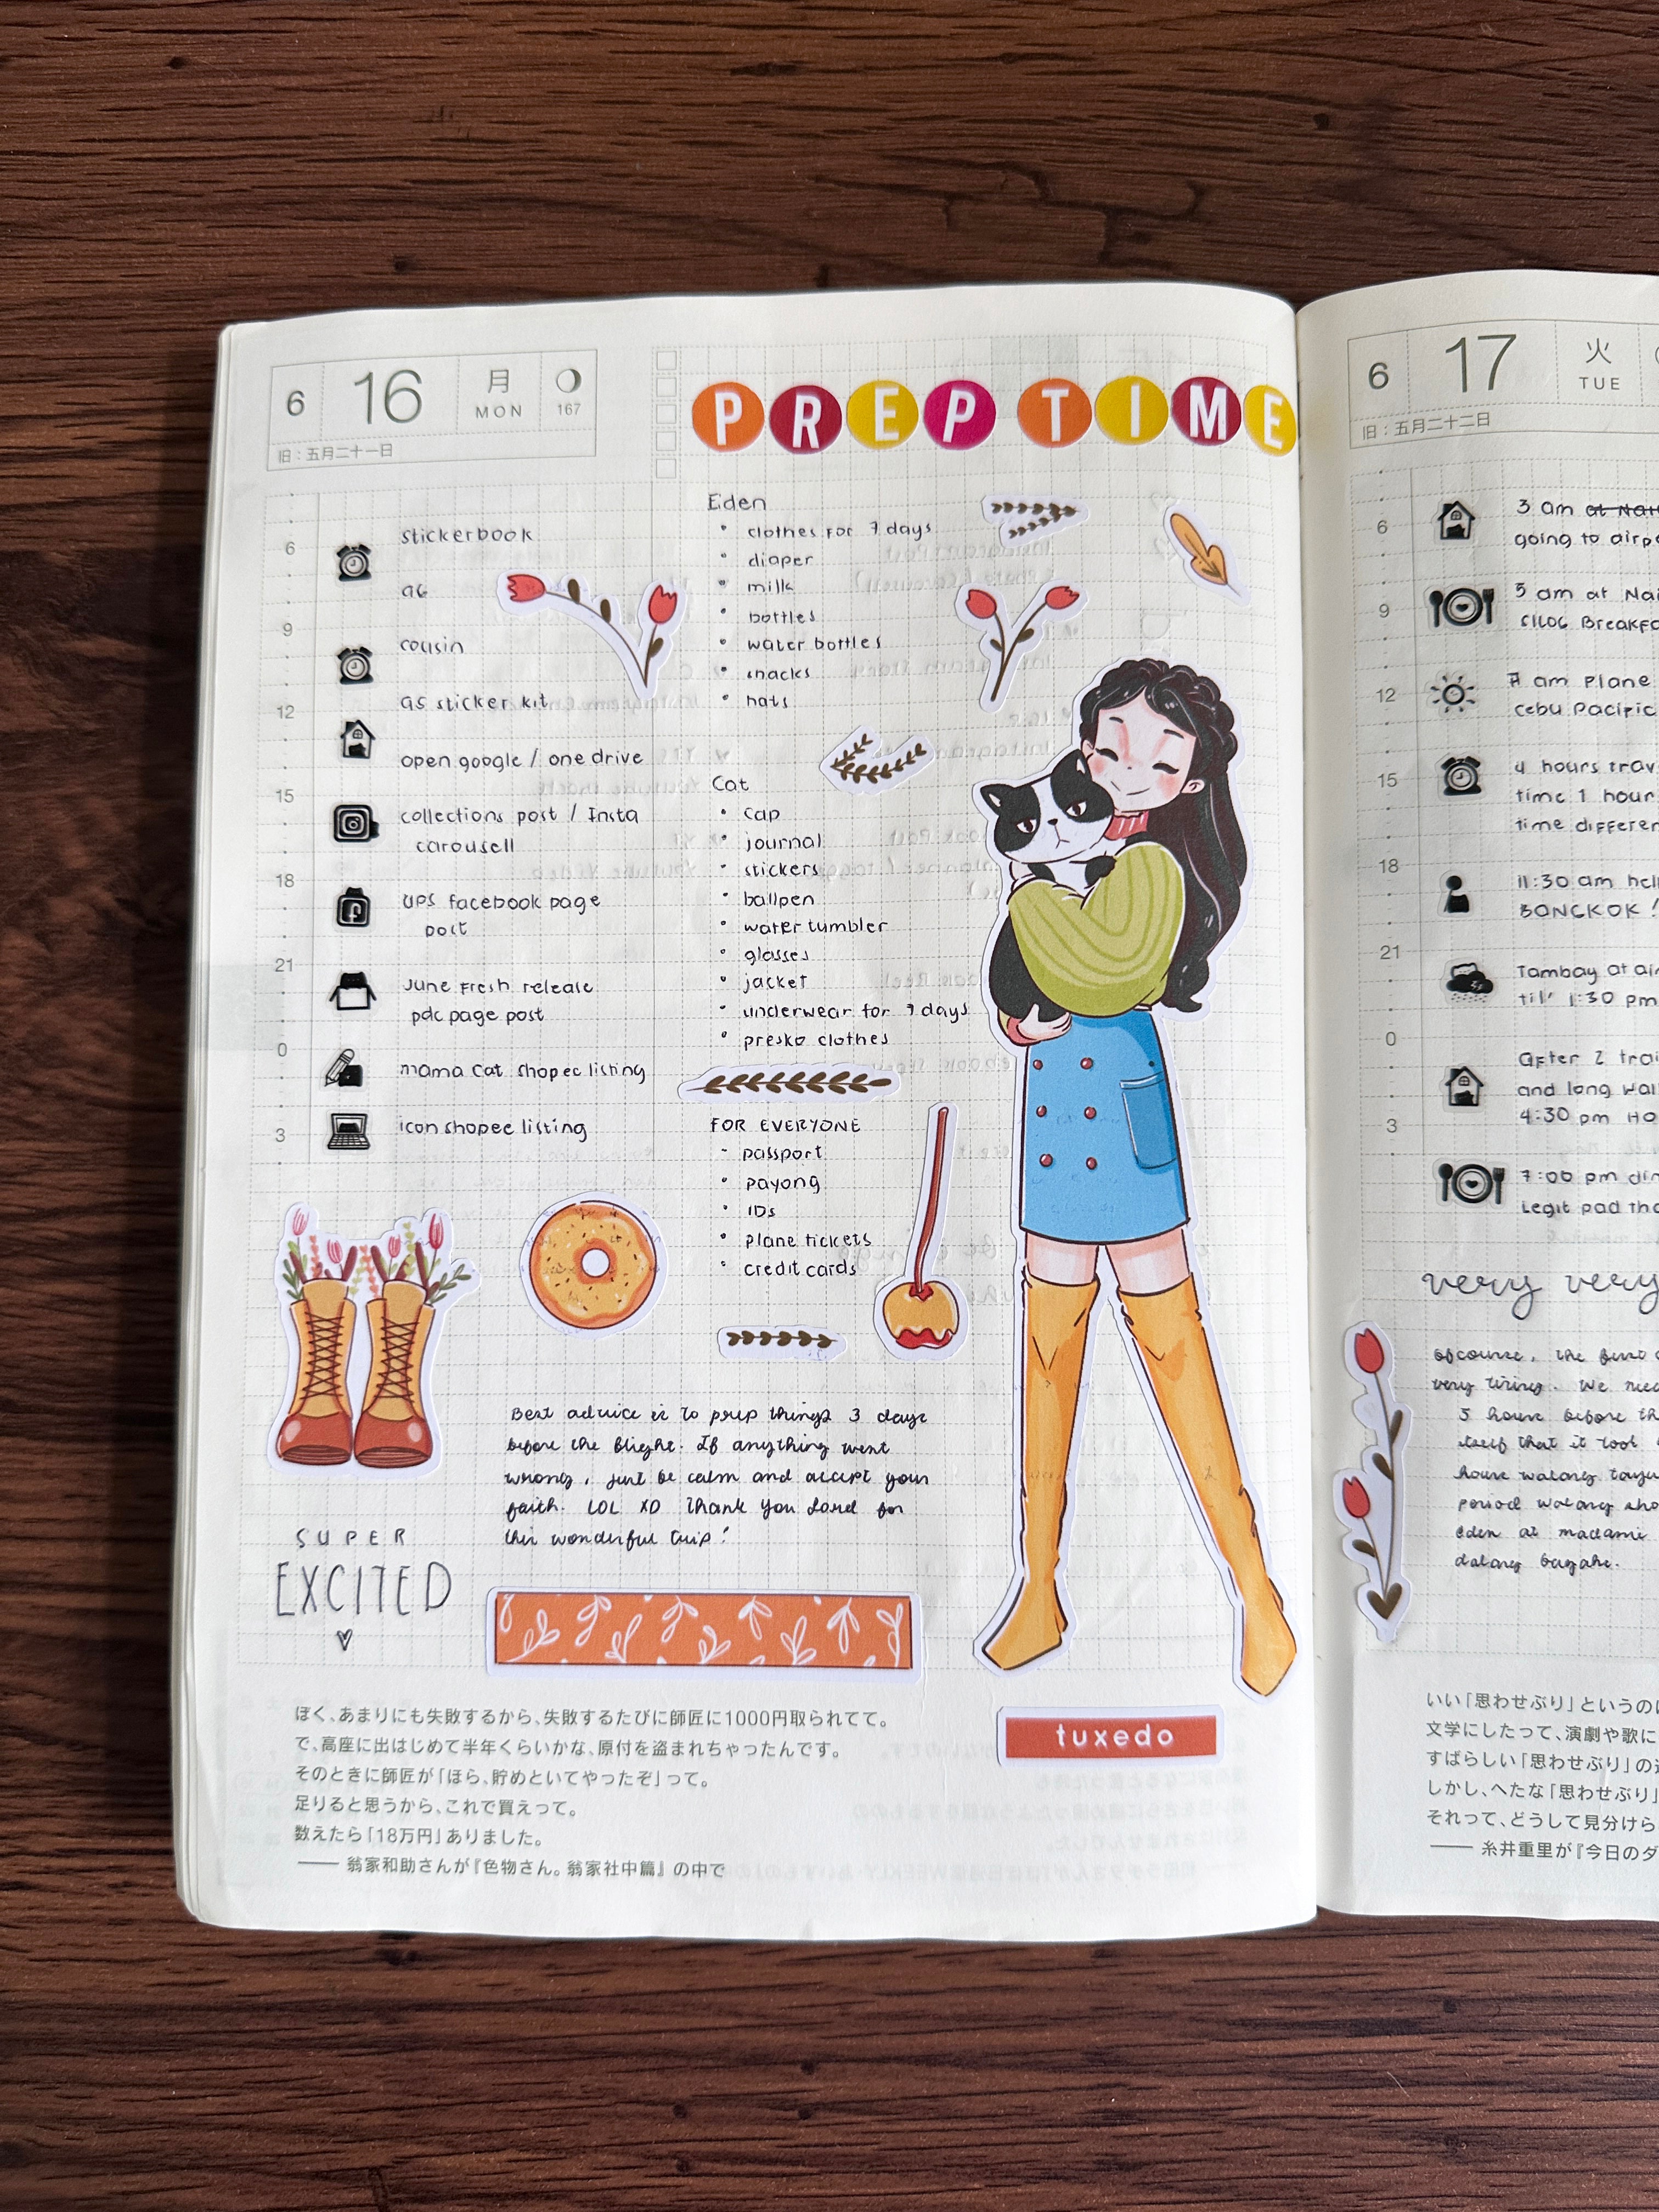 6 16 月 MON 167
旧：五月二十一日
PREP TIME
6
9
12
15
18
21
0
3
stickerbook
a6
cousin
a5 sticker kit
open google / one drive
collections post / Insta
carousell
UPS facebook page
post
June Fresh release
pdc page post
mama cat shopee listing
icon shopee listing
Eden
• clothes for 7 days
• diaper
• milk
• bottles
• water bottles
• snacks
• hats
Cat
• cap
• journal
• stickers
• ballpen
• water tumbler
• glasses
• jacket
• underwear for 7 days
• presko clothes
FOR EVERYONE
- passport
• payong
• IDs
• plane tickets
• credit cards
Best advice is to prep things 3 days
before the flight. If anything went
wrong, just be calm and accept your
faith. LOL XD Thank you Lord for
this wonderful trip!
SUPER
EXCITED
tuxedo
ぼく、あまりにも失敗するから、失敗するたびに師匠に1000円取られてて。
で、高座に出はじめて半年くらいかな、原付を盗まれちゃったんです。
そのときに師匠が「ほら、貯めといてやったぞ」って。
足りると思うから、これで買えって。
数えたら「18万円」ありました。
—— 翁家和助さんが『色物さん。翁家社中篇』の中で
6 17 火 TUE
旧：五月二十二日
6
9
12
15
18
21
0
3
3 am at
going to
5 am at
7 am Plane
cebu Pacific
4 hours
time 1 hour
time
11:30 am
BANGKOK !
Tambay at
til' 1:30 pm
After 2
and long
4:30 pm
7:00 pm
Legit pad
very very
ofcourse, the first
very tiring. We need
5 hours before
itself that it took
hours walang
period walang
Eden at madami
dalang bagahe.
いい「思わせぶり」というのは
文学にしたって、演劇や歌に
すばらしい「思わせぶり」の
しかし、へたな「思わせぶり」
それって、どうして見分けら
—— 糸井重里が『今日のダ